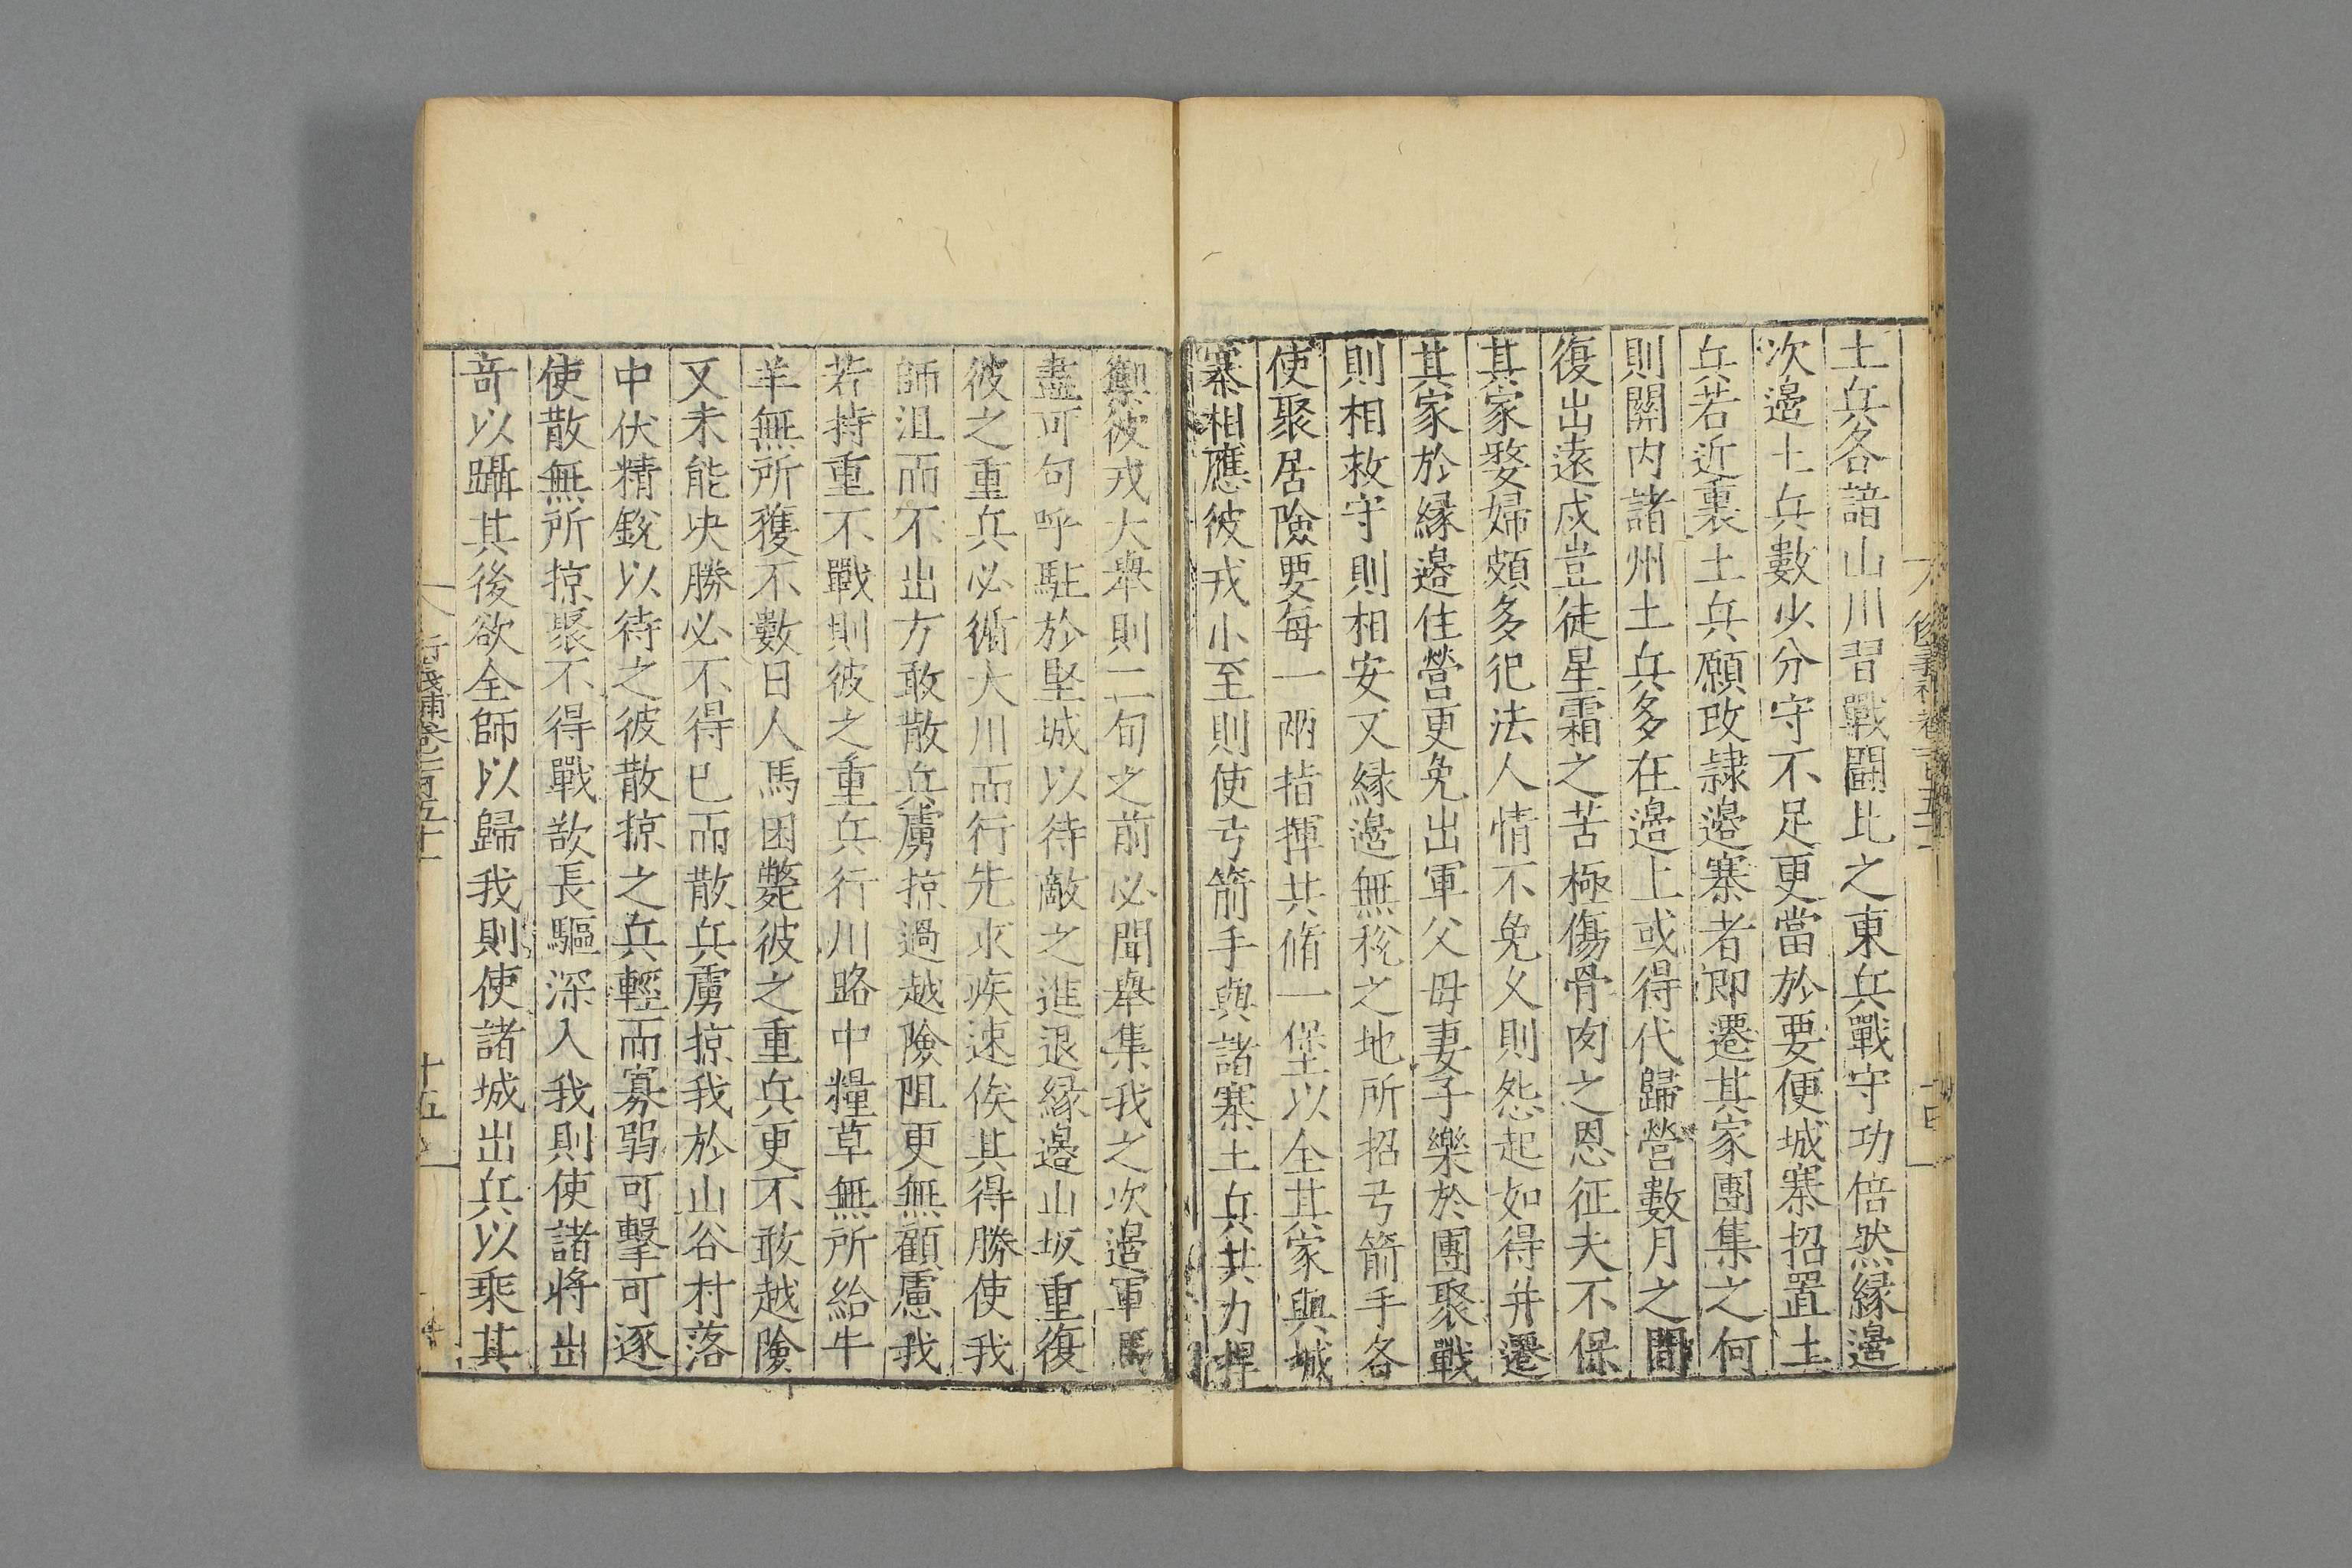 土兵各諳山川習戰鬬比之東兵戰守功倍然縁邉
次邉土兵數少分守不足更當於要便城寨招置土
兵若近裏土兵願改隷邉寨者即遷其家團集之何
則關内諸州土兵多在邉上或得代歸營數月之間
復出遠戍豈徒星霜之苦極傷骨肉之恩征夫不保
其家嫠婦頗多犯法人情不免乆則怨起如得并遷
其家於縁邉住營更免出軍父母妻子樂於團聚戰
則相救守則相安又縁邉無稅之地所招弓箭手各
使聚居險要每一兩指揮共脩一堡以全其家與城
寨相應彼戎小至則使弓箭手與諸寨土兵共力捍
禦彼戎大舉則二旬之前必聞舉集我之次邉軍馬
盡可句呼駐於堅城以待敵之進退縁邉山坂重復
彼之重兵必循大川而行先求疾速俟其得勝使我
師沮而不出方敢散兵虜掠過越險阻更無顧慮我
若持重不戰則彼之重兵行川路中糧草無所給牛
羊無所獲不數日人馬困斃彼之重兵更不敢越險
又未能决勝必不得已而散兵虜掠我於山谷村落
中伏精銳以待之彼散掠之兵輕而寡弱可擊可逐
使散無所掠聚不得戰欲長驅深入我則使諸將出
竒以躡其後欲全師以歸我則使諸城出兵以乘其
衍義補卷一百五十一
十五